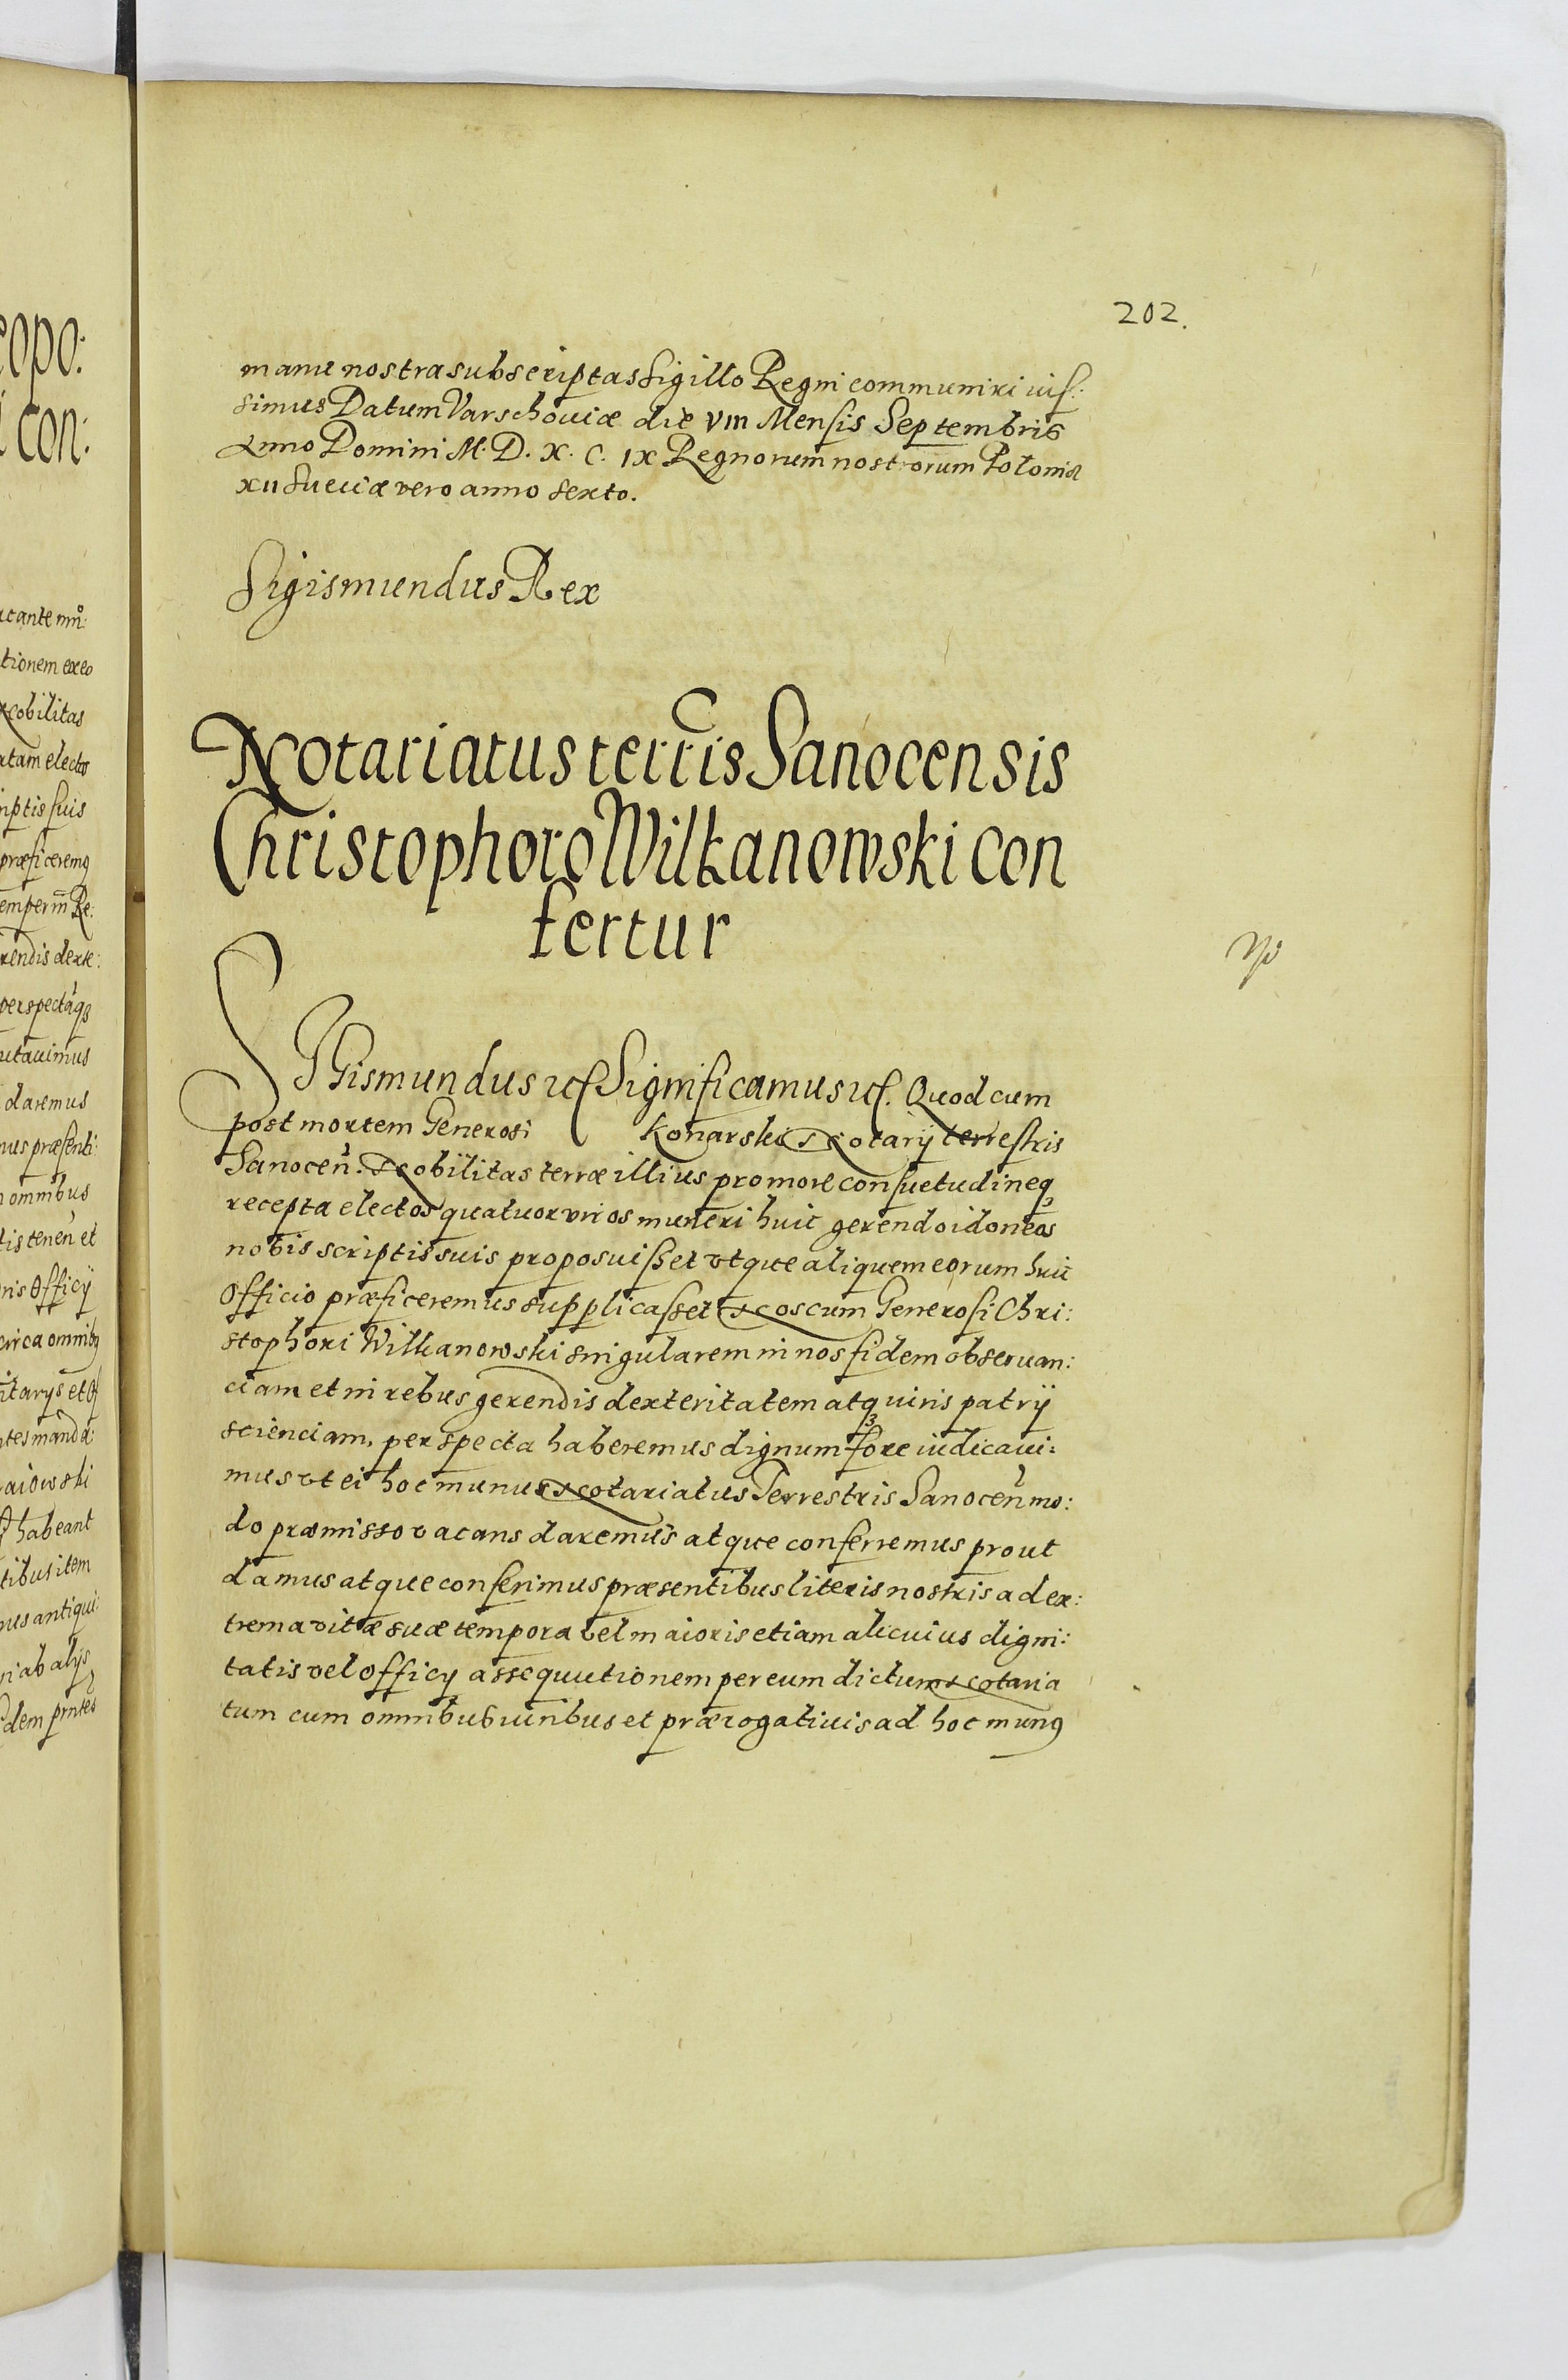 202.
manu nostra subscriptas Sigillo Regni communiri iuſ:
simus Datum Varschouiæ die VIII Mensis Septembris
Anno Domini M. D. X. C. IX Regnorum nostrorum Poloniæ
XII Sueciæ vero anno sexto.
Sigismundus Rex
Notariatus terris Sanocensis
Christophoro Wilkanowski con
fertur
SIGismundus etc Significamus etc. Quod cum
post mortem Generosi Konarski Notarij terrestris
Sanocen̄: Nobilitas terræ illius pro more consuetudineq3
recepta electos quatuor viros muneri huic gerendo idoneos
nobis scriptis suis proposuisset vtque aliquem eorum huic
Officio præficeremus supplicasset Nos cum Generosi Chri:
stophori Wilkanowski singularem in nos fidem obseruan:
ciam et in rebus gerendis dexteritatem atq3 iuris patrij
scienciam, perspecta haberemus dignum fore iudicaui:
mus vt ei hoc munus Notariatus Terrestris Sanocen̄ mo:
do præmisso vacans daremus atque conferremus prout
damus atque conferimus præsentibus literis nostris ad ex:
trema vitæ suæ tempora vel maioris etiam alicuius digni:
tatis vel Officij assequutionem per eum dictum Notaria
tum cum omnibus iuribus et prærogatiuis ad hoc munꝯ
eopo:
i con:
acante mn̊:
tionem ex eo
Nobilitas
atam electos
riptis suis
præficeremꝯ
semper in Re:
rendis dexte:
perspectāq3
utauimus
daremus
mus præsenti:
omnibus
tis tenen̄ et
ris Officij
circa omnibꝯ
itarys et Of
ntes manda:
aiowski
habeant
tibus item
nus antiqui:
ri ab alijs
dem prntes